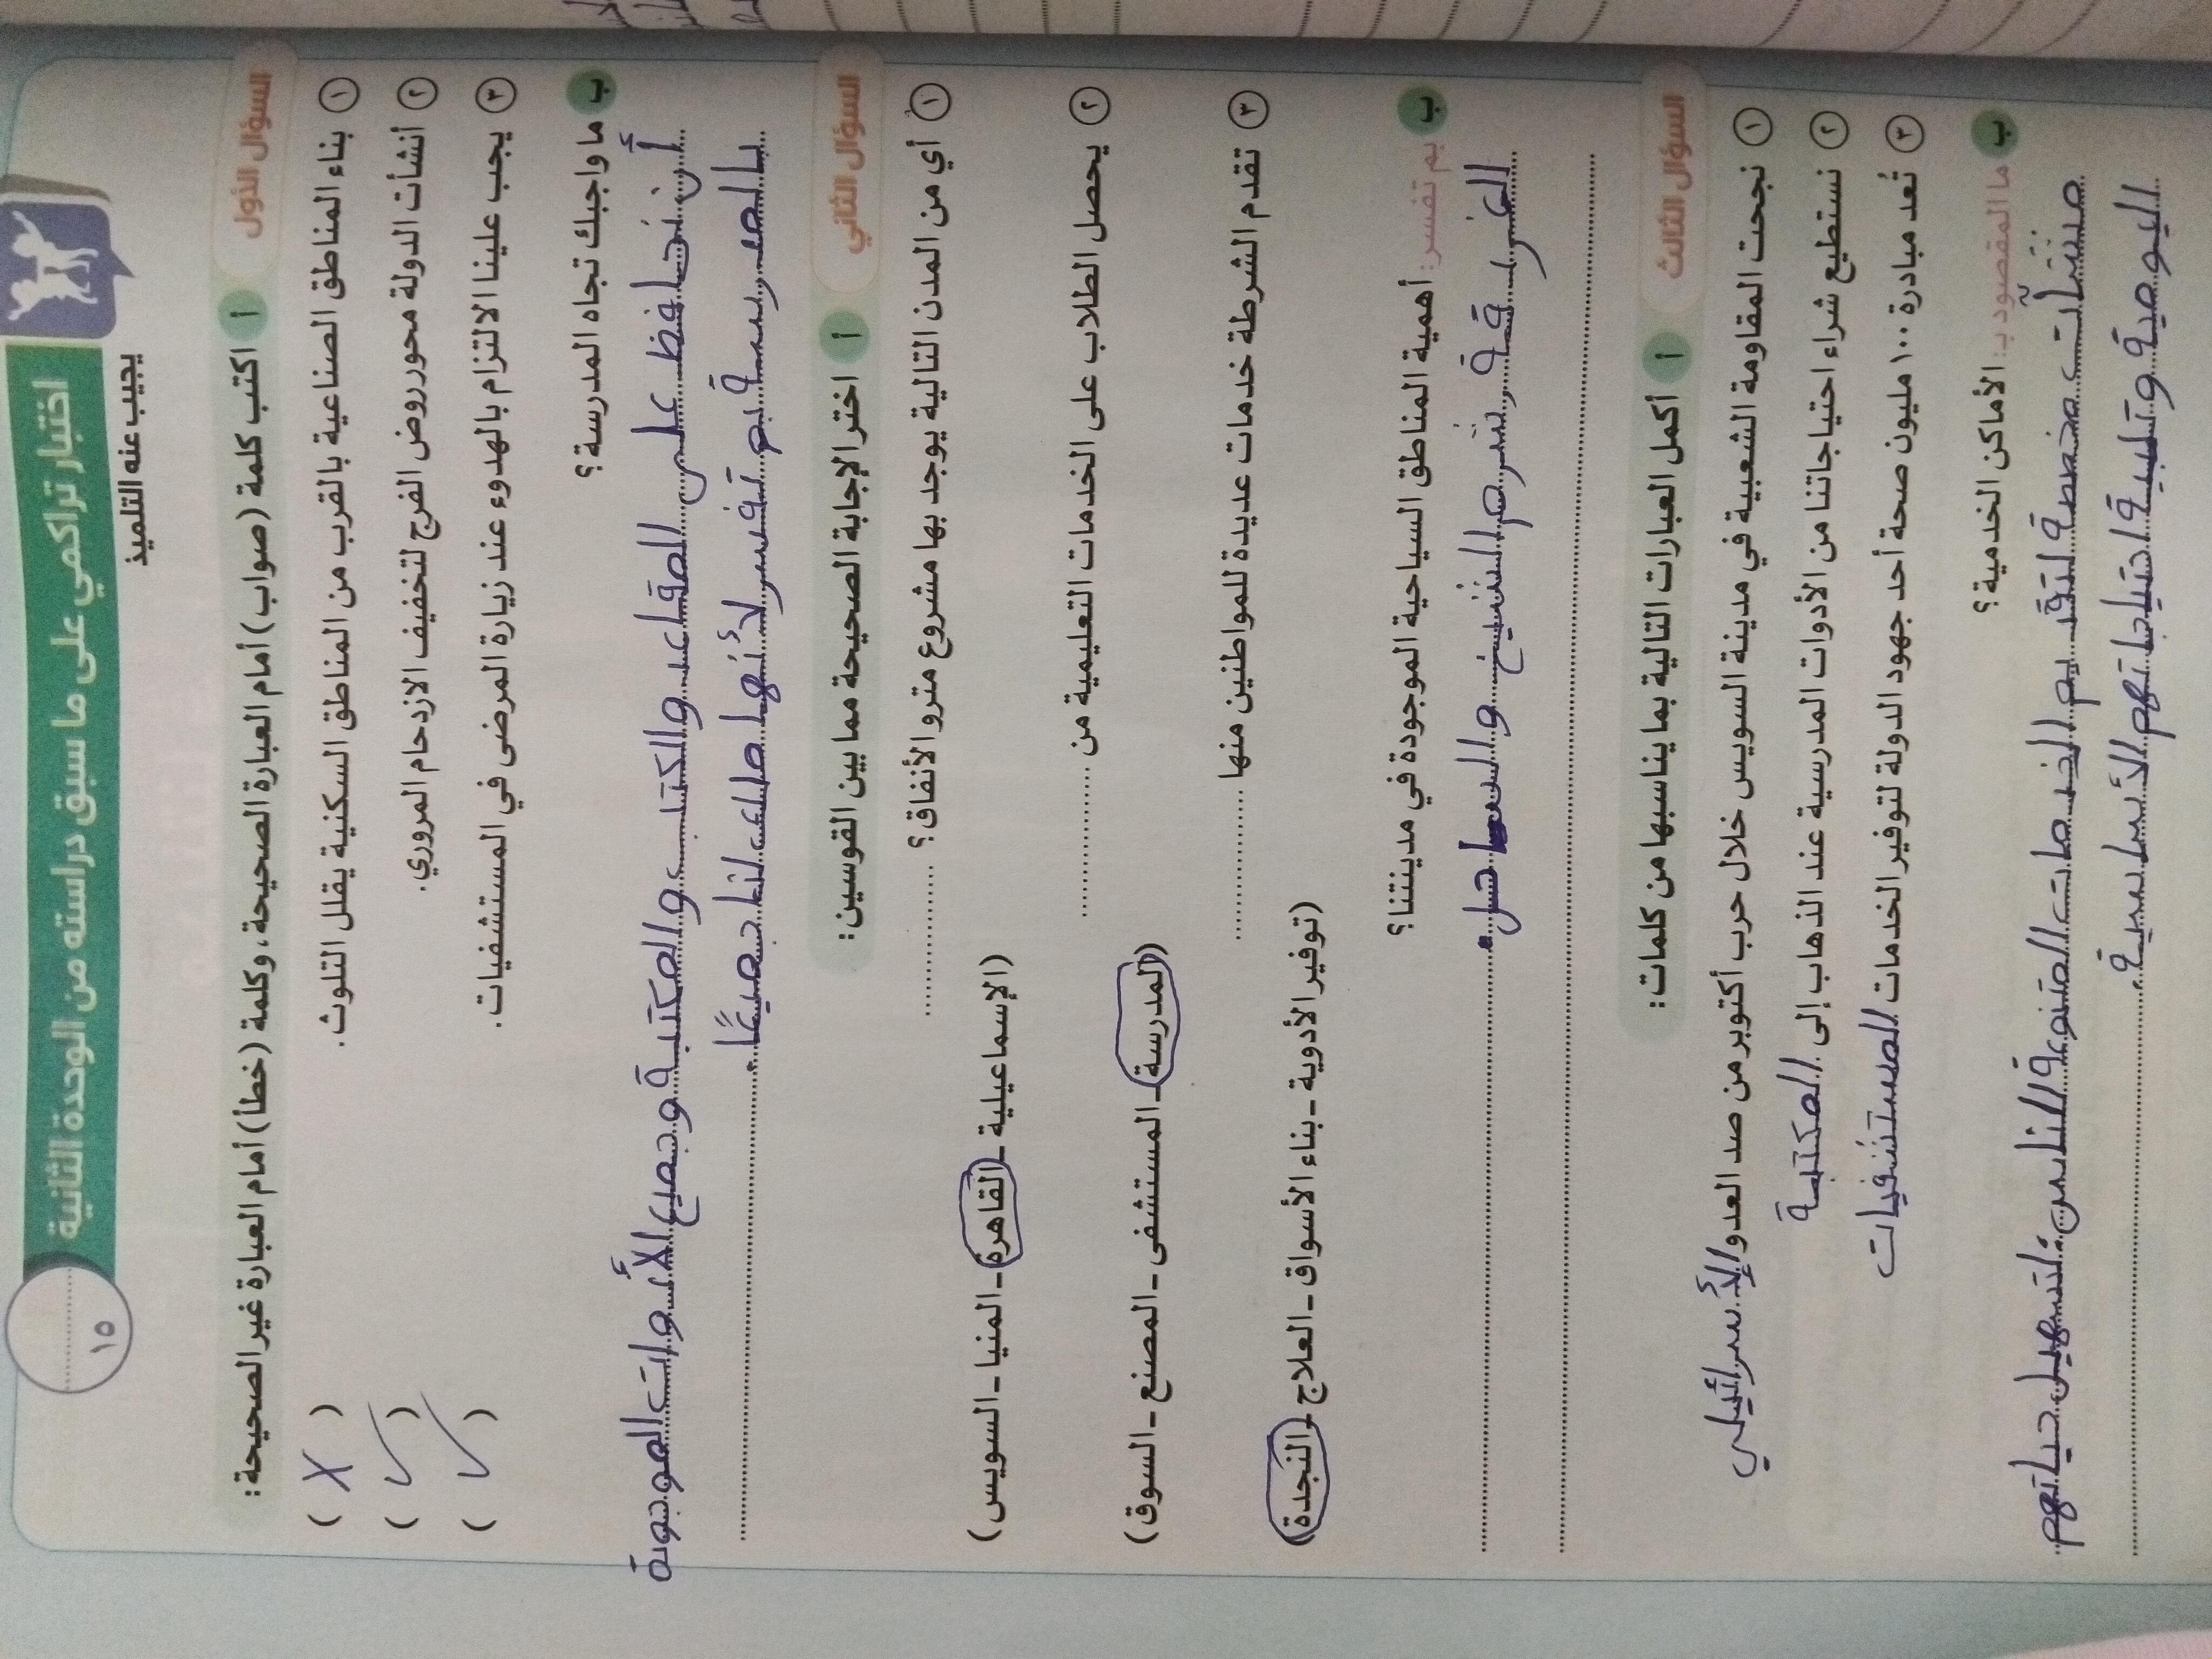 اختبار تراكمي على ما سبق دراسته من الوحدة الثانية
١٥
يجيب عنه التلميذ
السؤال الأول
أ اكتب كلمة (صواب) أمام العبارة الصحيحة، وكلمة (خطأ) أمام العبارة غير الصحيحة:
١ بناء المناطق الصناعية بالقرب من المناطق السكنية يقلل التلوث. ( X )
٢ أنشأت الدولة محور روض الفرج لتخفيف الازدحام المروري. ( ✓ )
٣ يجب علينا الالتزام بالهدوء عند زيارة المرضى في المستشفيات. ( ✓ )
ب ما واجبك تجاه المدرسة؟
أن نحافظ على المقاعد والكتب والمكتبة وجميع الأدوات الموجودة
بالمدرسة بم تفسر لأنها ملك لنا جميعًا.
السؤال الثاني
أ اختر الإجابة الصحيحة مما بين القوسين:
١ أي من المدن التالية يوجد بها مشروع مترو الأنفاق؟ ............
(الإسماعيلية - القاهرة - المنيا - السويس)
٢ يحصل الطلاب على الخدمات التعليمية من ............
(المدرسة - المستشفى - المصنع - السوق)
٣ تقدم الشرطة خدمات عديدة للمواطنين منها ............
(توفير الأدوية - بناء الأسواق - العلاج - النجدة)
ب بم تفسر: أهمية المناطق السياحية الموجودة في مدينتنا؟
الغردقة وشرم الشيخ و الساحل.
السؤال الثالث
أ أكمل العبارات التالية بما يناسبها من كلمات:
١ نجحت المقاومة الشعبية في مدينة السويس خلال حرب أكتوبر من صد العدو الإسرائيلي
٢ نستطيع شراء احتياجاتنا من الأدوات المدرسية عند الذهاب إلى المكتبة
٣ تُعد مبادرة ١٠٠ مليون صحة أحد جهود الدولة لتوفير الخدمات المستشفيات
ب ما المقصود بـ: الأماكن الخدمية؟
منشآت مخصصة لتقديم الخدمات المتنوعة للناس، لتسهيل حياتهم
اليومية وتلبية احتياجاتهم الأساسية.